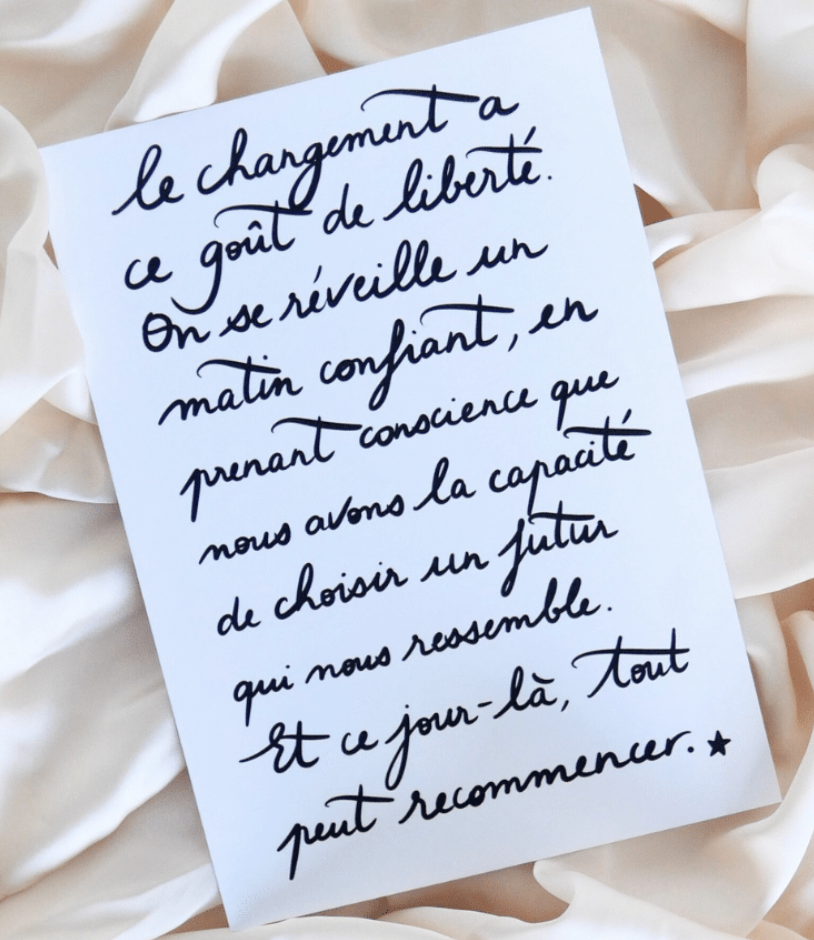 le changement a
ce goût de liberté.
On se réveille un
matin confiant, en
prenant conscience que
nous avons la capacité
de choisir un futur
qui nous ressemble.
Et ce jour-là, tout
peut recommencer. ★